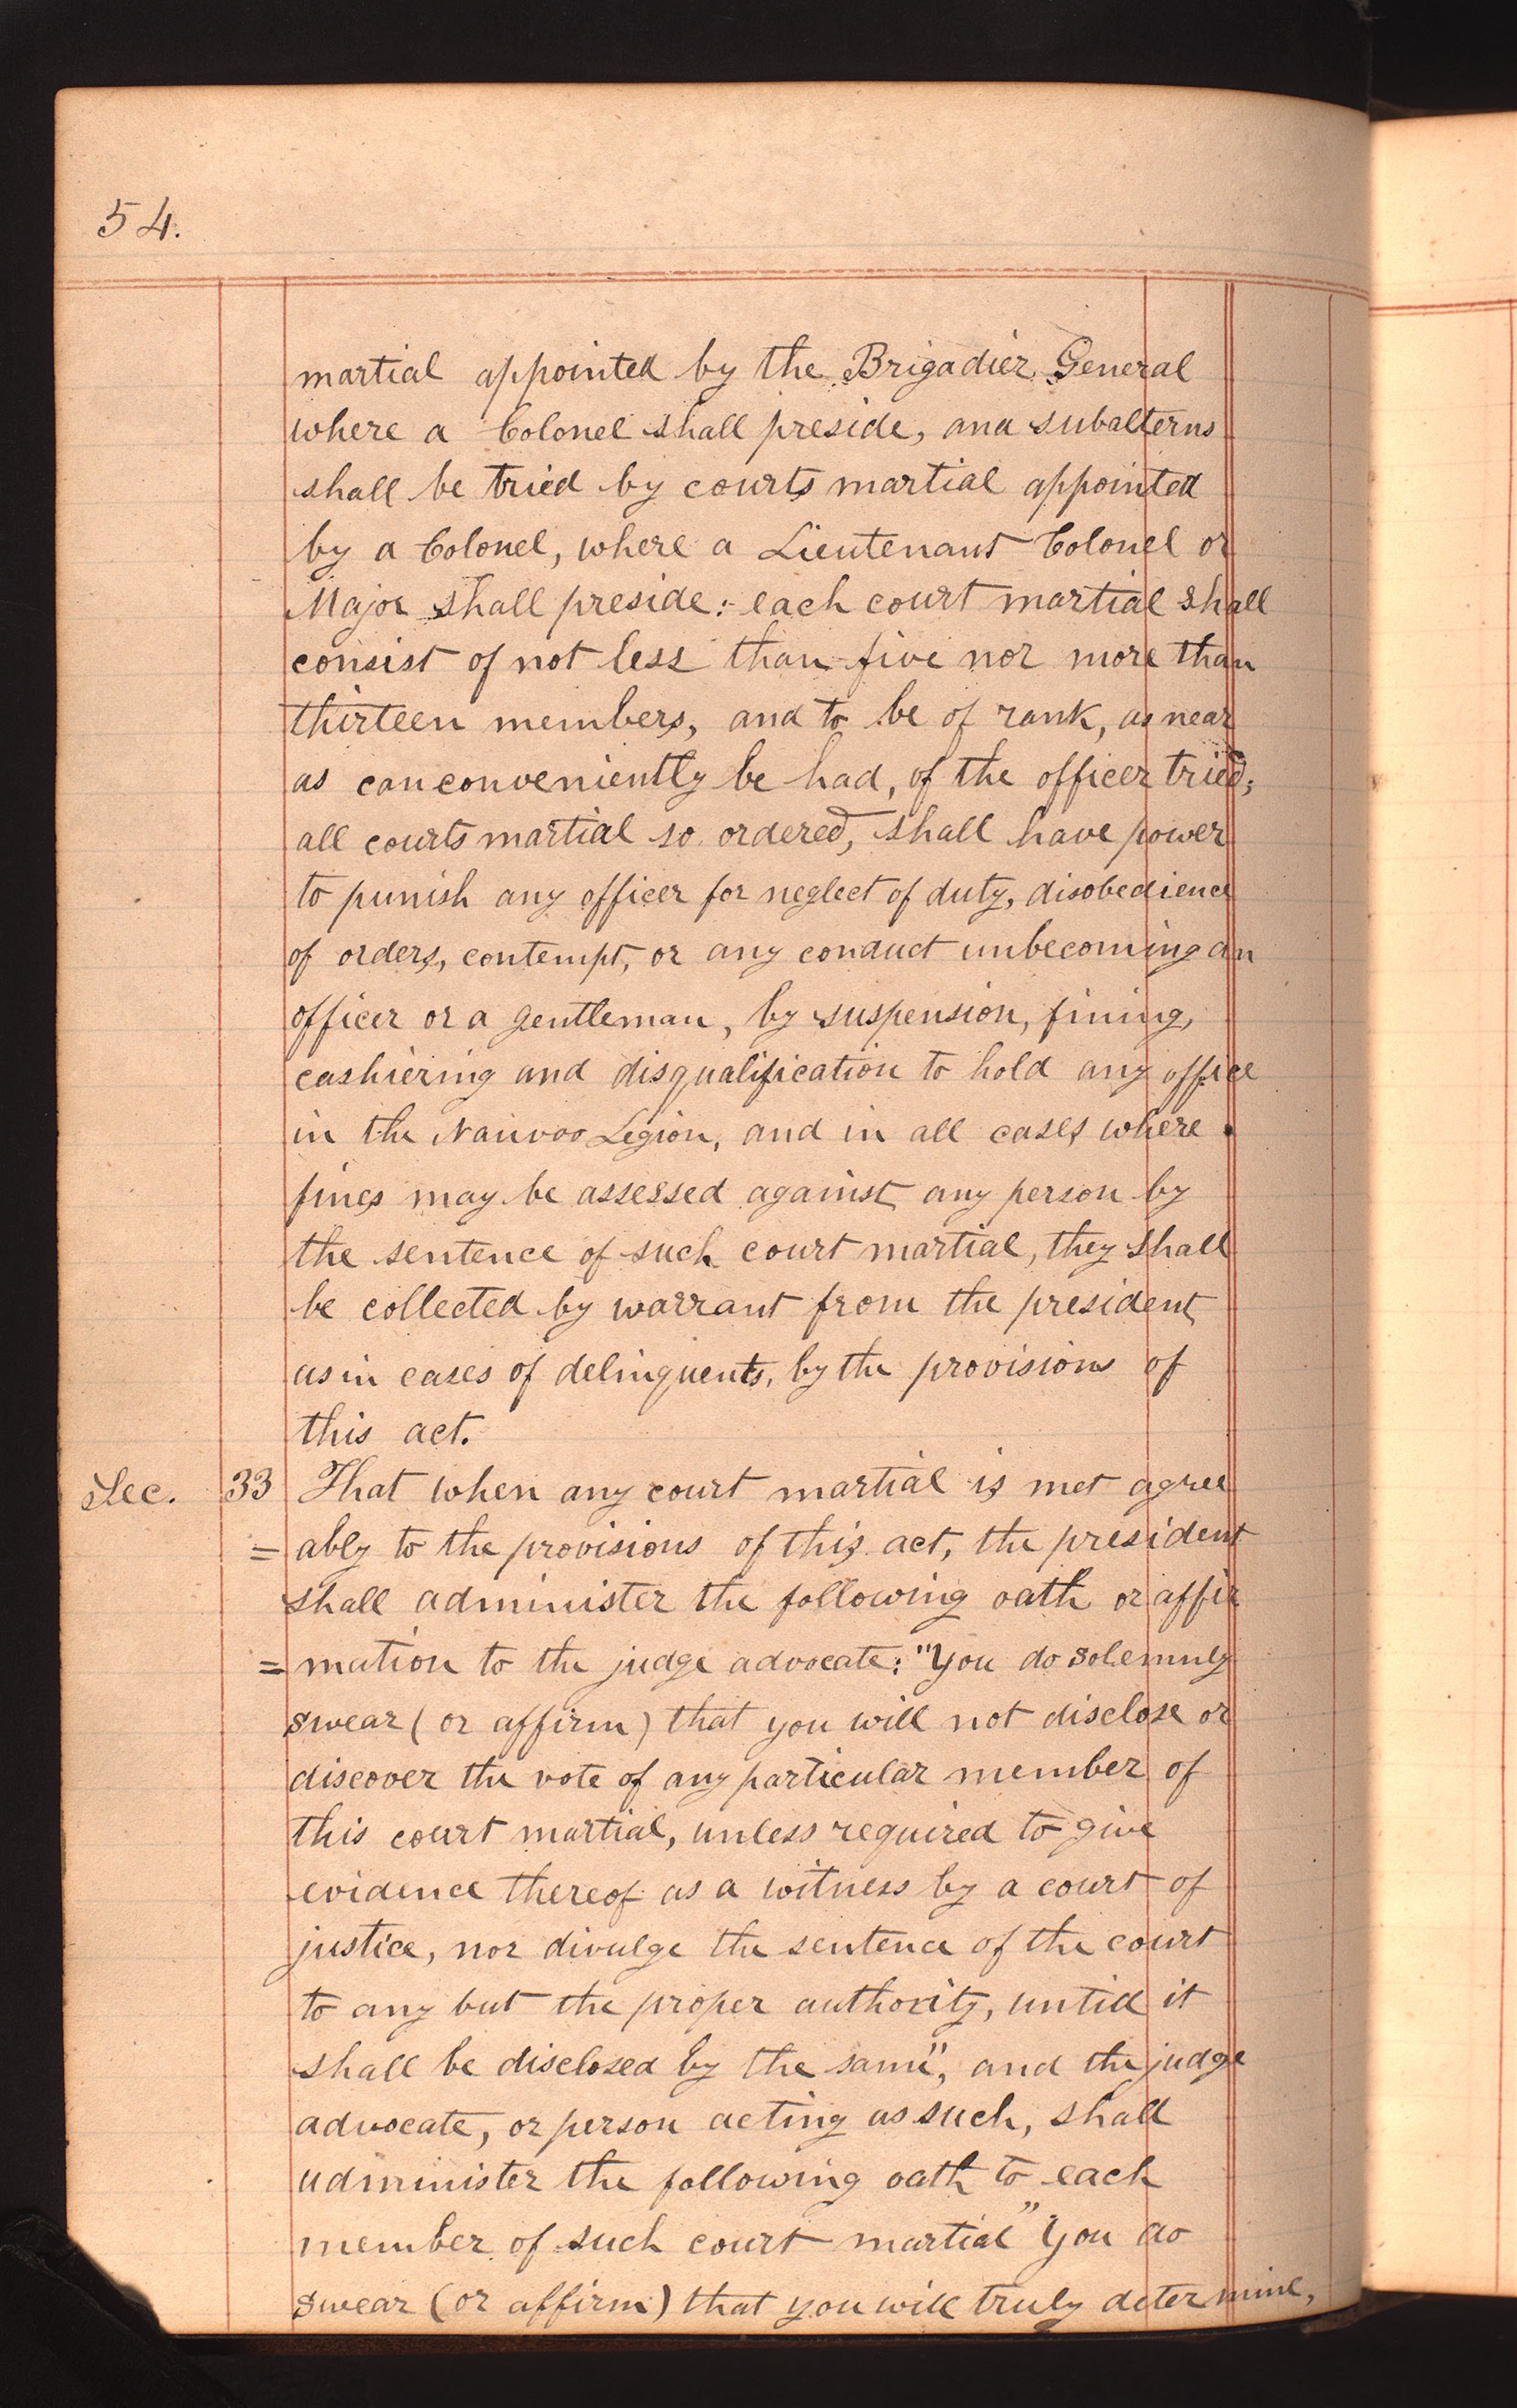 54.
martial appointed by the Brigadier General
where a Colonel shall preside, and subalterns
shall be tried by courts martial appointed
by a Colonel, where a Lieutenant Colonel or
Major shall preside:- each court martial shall
consist of not less than five nor more than
thirteen members, and to be of rank, as near
as can conveniently be had, of the officer tried;
all courts martial so ordered, shall have power
to punish any officer for neglect of duty, disobedience
of orders, contempt, or any conduct unbecoming an
officer or a gentleman, by suspension, fining,
cashiering and disqualification to hold any office
in the Nauvoo Legion, and in all cases where
fines may be assessed against any person by
the sentence of such court martial, they shall
be collected by warrant from the president
as in cases of delinquents, by the provisions of
this act.
Sec. 33 That when any court martial is met agree
= ably to the provisions of this act, the president
shall administer the following oath or affir
= mation to the judge advocate: "You do solemnly
swear (or affirm) that you will not disclose or
discover the vote of any particular member of
this court martial, unless required to give
evidence thereof as a witness by a court of
justice, nor divulge the sentence of the court
to any but the proper authority, until it
shall be disclosed by the same", and the judge
advocate, or person acting as such, shall
administer the following oath to each
member of such court martial "You do
swear (or affirm) that you will truly determine,